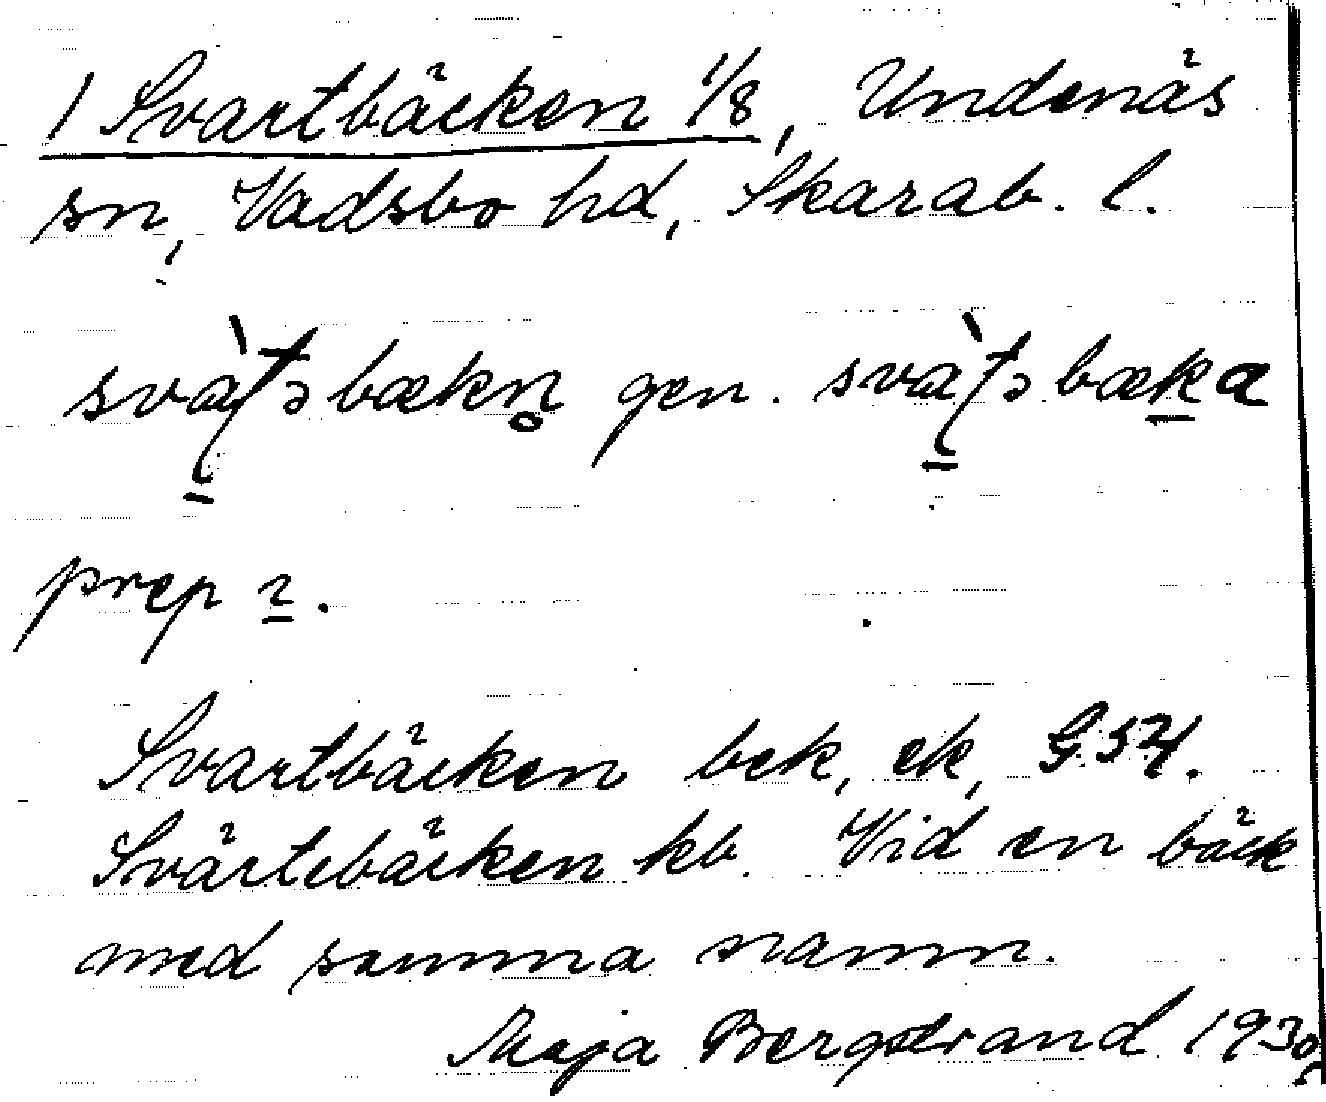 1 Svartbäcken 1/8, Undenäs
sn, Vadsbo hd, Skarab. l.
gen.
prep ɩ.
Svartbäcken bek, ek, G.S24.
Svärtebäcken kb. Vid en bäck
med samma namn.
Maja Bergstrand 1930